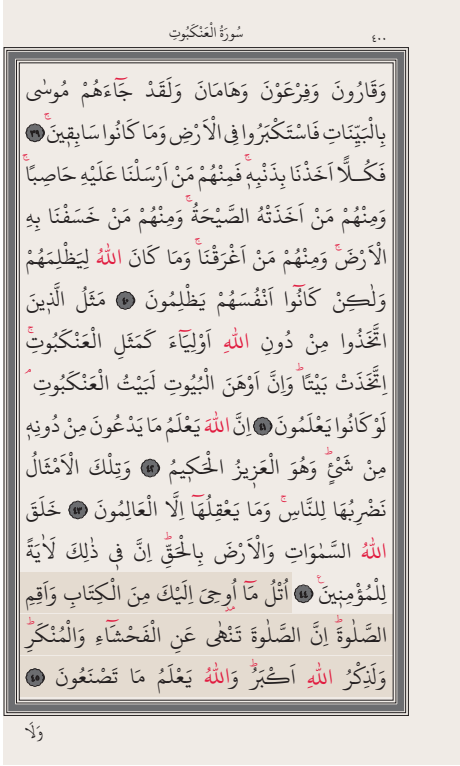 سُورَةُ الْعَنْكَبُوتِ ٤٠٠
وَقَارُونَ وَفِرْعَوْنَ وَهَامَانَ وَلَقَدْ جَٓاءَهُمْ مُوسٰى
بِالْبَيِّنَاتِ فَاسْتَكْبَرُوا فِي الْاَرْضِ وَمَا كَانُوا سَابِقِينَۚ ﴿٣٩﴾
فَكُلًّا اَخَذْنَا بِذَنْبِهٖۚ فَمِنْهُمْ مَنْ اَرْسَلْنَا عَلَيْهِ حَاصِبًاۚ
وَمِنْهُمْ مَنْ اَخَذَتْهُ الصَّيْحَةُۚ وَمِنْهُمْ مَنْ خَسَفْنَا بِهِ
الْاَرْضَۚ وَمِنْهُمْ مَنْ اَغْرَقْنَاۚ وَمَا كَانَ اللّٰهُ لِيَظْلِمَهُمْ
وَلٰكِنْ كَانُٓوا اَنْفُسَهُمْ يَظْلِمُونَ ﴿٤٠﴾ مَثَلُ الَّذٖينَ
اتَّخَذُوا مِنْ دُونِ اللّٰهِ اَوْلِيَٓاءَ كَمَثَلِ الْعَنْكَبُوتِۚ
اِتَّخَذَتْ بَيْتًاۜ وَاِنَّ اَوْهَنَ الْبُيُوتِ لَبَيْتُ الْعَنْكَبُوتِۢ
لَوْ كَانُوا يَعْلَمُونَ ﴿٤١﴾ اِنَّ اللّٰهَ يَعْلَمُ مَا يَدْعُونَ مِنْ دُونِهٖ
مِنْ شَيْءٍۜ وَهُوَ الْعَزٖيزُ الْحَكٖيمُ ﴿٤٢﴾ وَتِلْكَ الْاَمْثَالُ
نَضْرِبُهَا لِلنَّاسِۚ وَمَا يَعْقِلُهَٓا اِلَّا الْعَالِمُونَ ﴿٤٣﴾ خَلَقَ
اللّٰهُ السَّمٰوَاتِ وَالْاَرْضَ بِالْحَقِّۜ اِنَّ فٖي ذٰلِكَ لَاٰيَةً
لِلْمُؤْمِنٖينَۚ ﴿٤٤﴾ اُتْلُ مَٓا اُو۫حِيَ اِلَيْكَ مِنَ الْكِتَابِ وَاَقِمِ
الصَّلٰوةَۜ اِنَّ الصَّلٰوةَ تَنْهٰى عَنِ الْفَحْشَٓاءِ وَالْمُنْكَرِۜ
وَلَذِكْرُ اللّٰهِ اَكْبَرُۜ وَاللّٰهُ يَعْلَمُ مَا تَصْنَعُونَ ﴿٤٥﴾
وَلَا